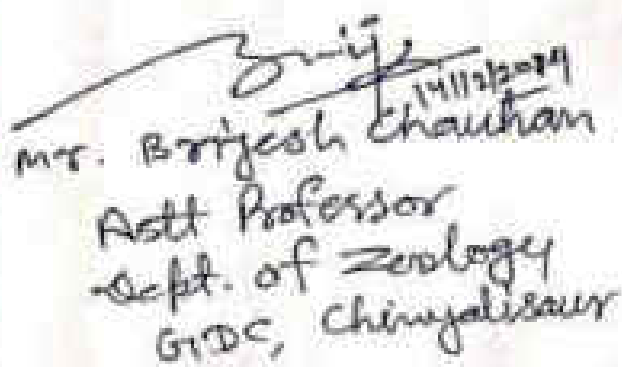 Brij
14/12/2024
Mr. Brijesh Chauhan
Astt Professor
Dept. of Zoology
GDC, Chinyalisaur